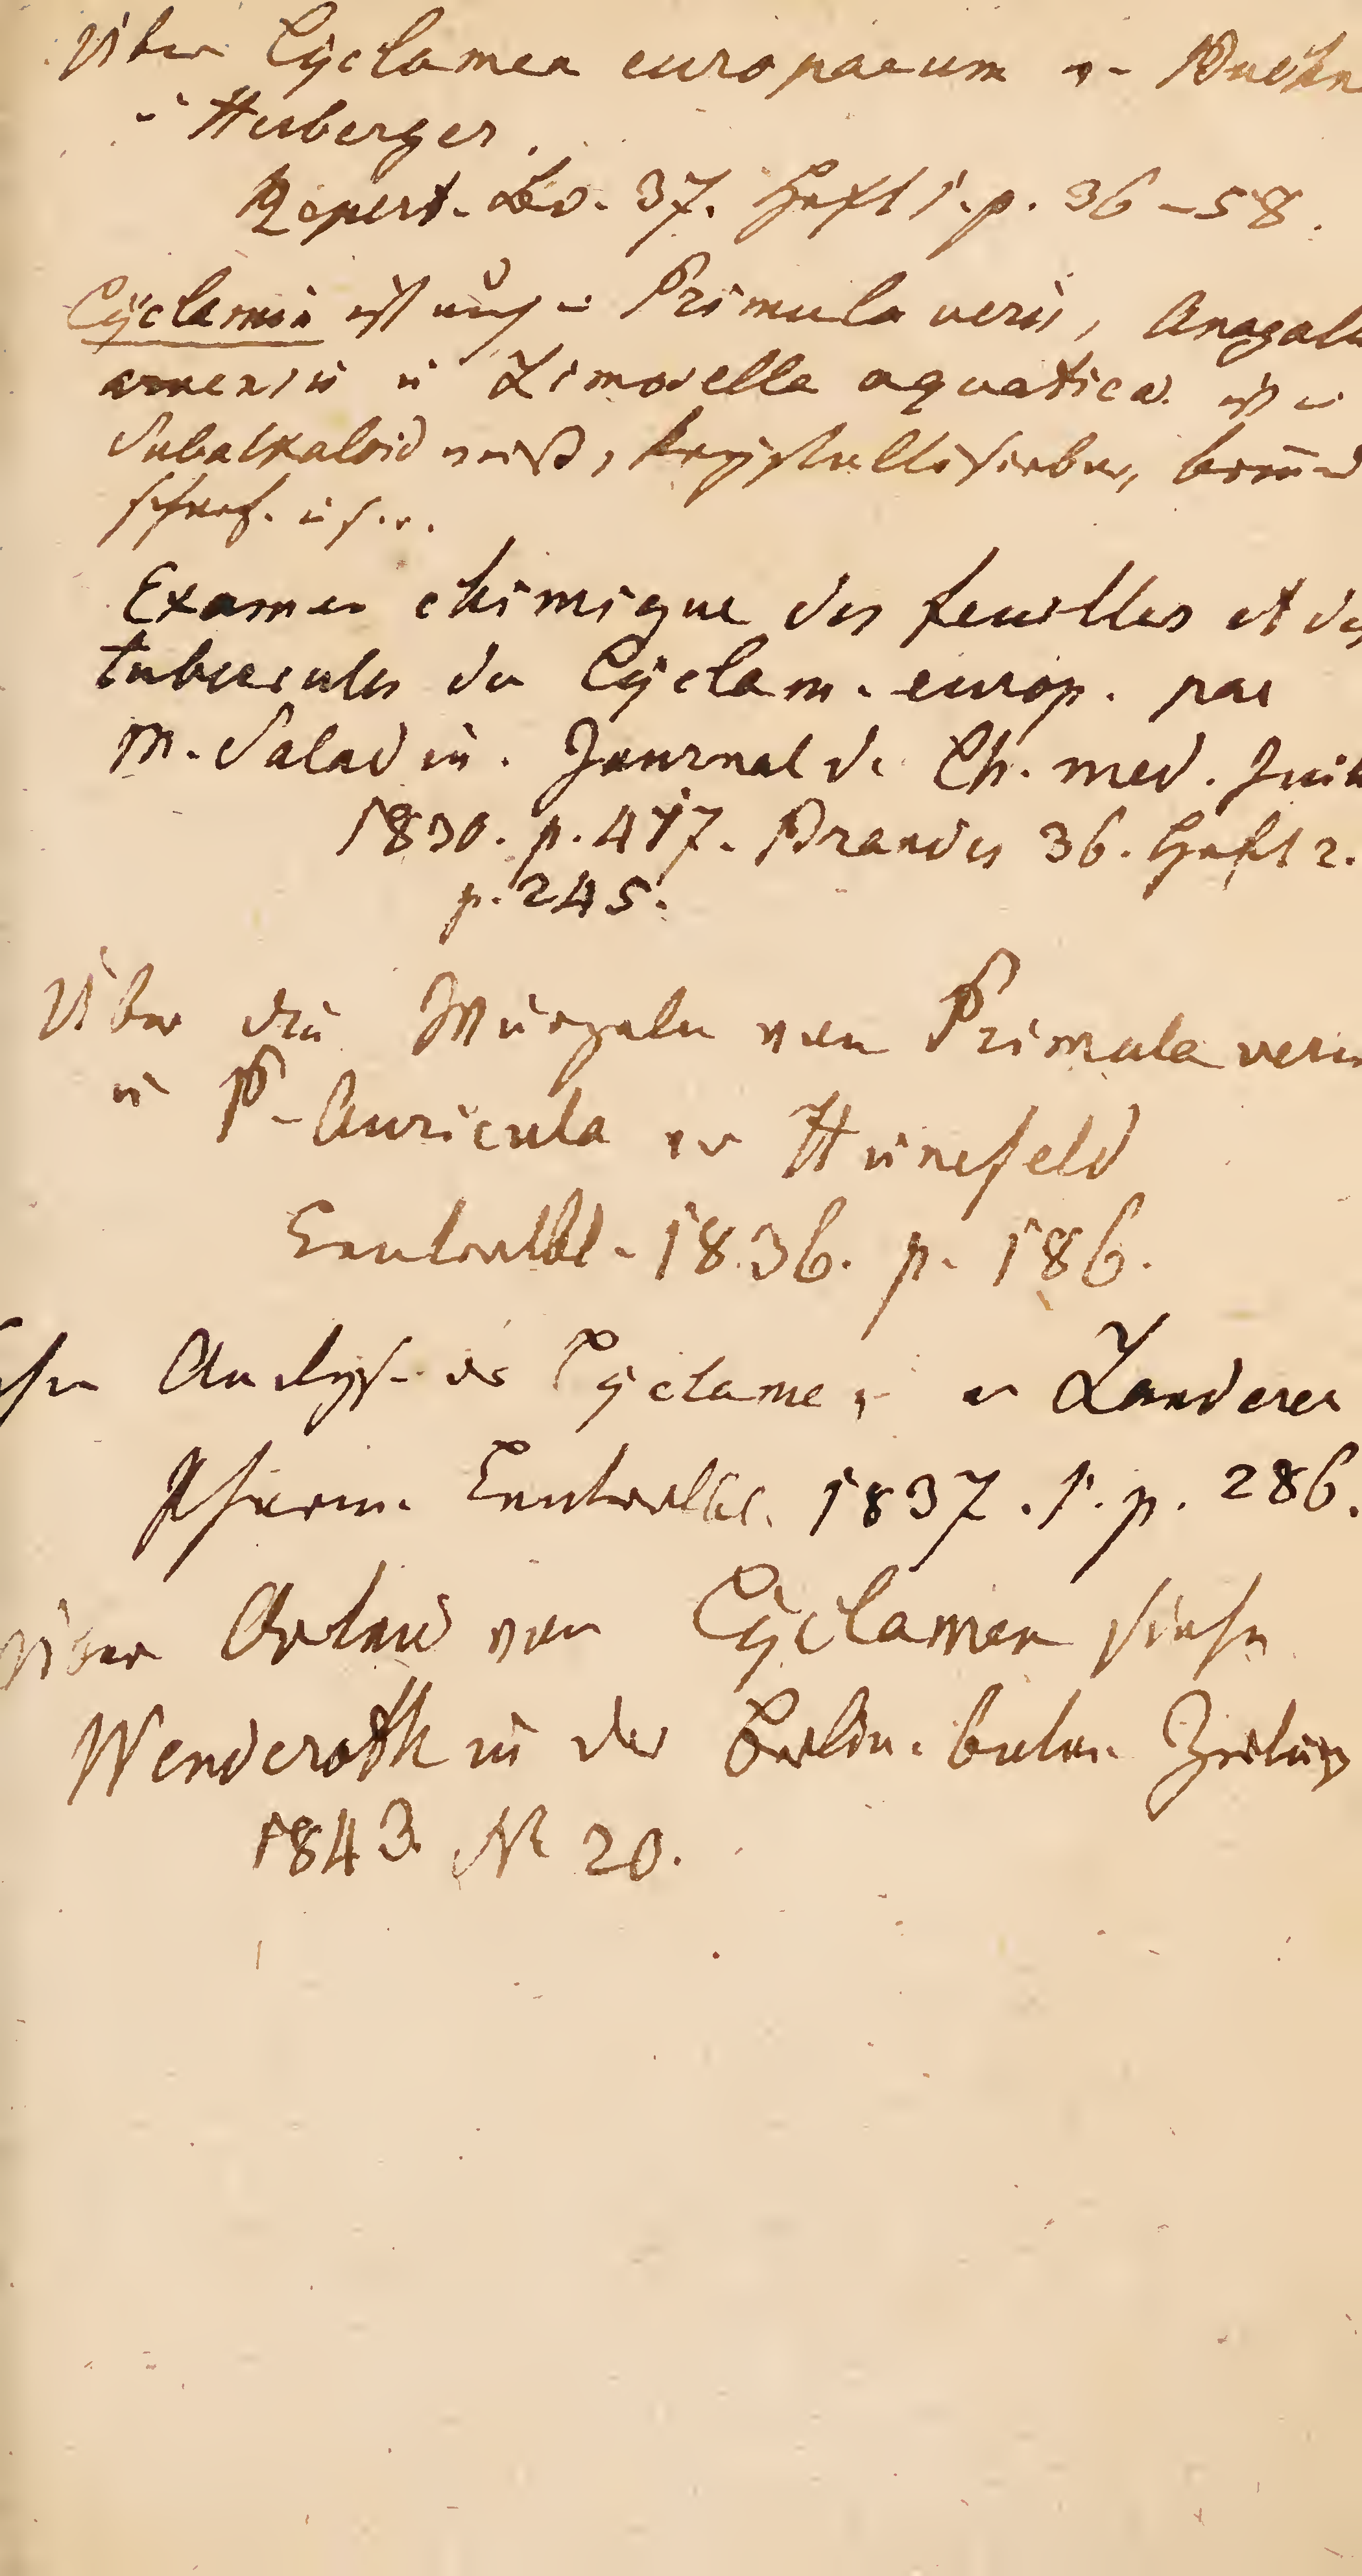 Über Cyclamen europaeum v. Buchn
u Herberger.
Repert. Bd. 37. Heft 1. p. 36–58.
Cyclamin ist auch in Primula veris, Anagall
arvensis u Limosella aquatica. ist ein
Subalkaloid weiß, krystallisirbar, brennend
scharf. u s. w.
Examen chimique des feuilles et des
tubercules du Cyclam. europ. par
M. Saladin. Journal de Ch. med. Juill
1830. p. 417. Brandes 36. Heft 2.
p. 245.
Über die Wurzeln von Primula veris
u P. Auricula v Hünefeld
Centralbl. 1836. p. 186.
Analyse des Cyclamen v Landerer
Pharm. Centralbl. 1837. 1. p. 286.
Über Arten von Cyclamen siehe
Wenderoth in der Berlin. botan. Zeitung
1843. N 20.